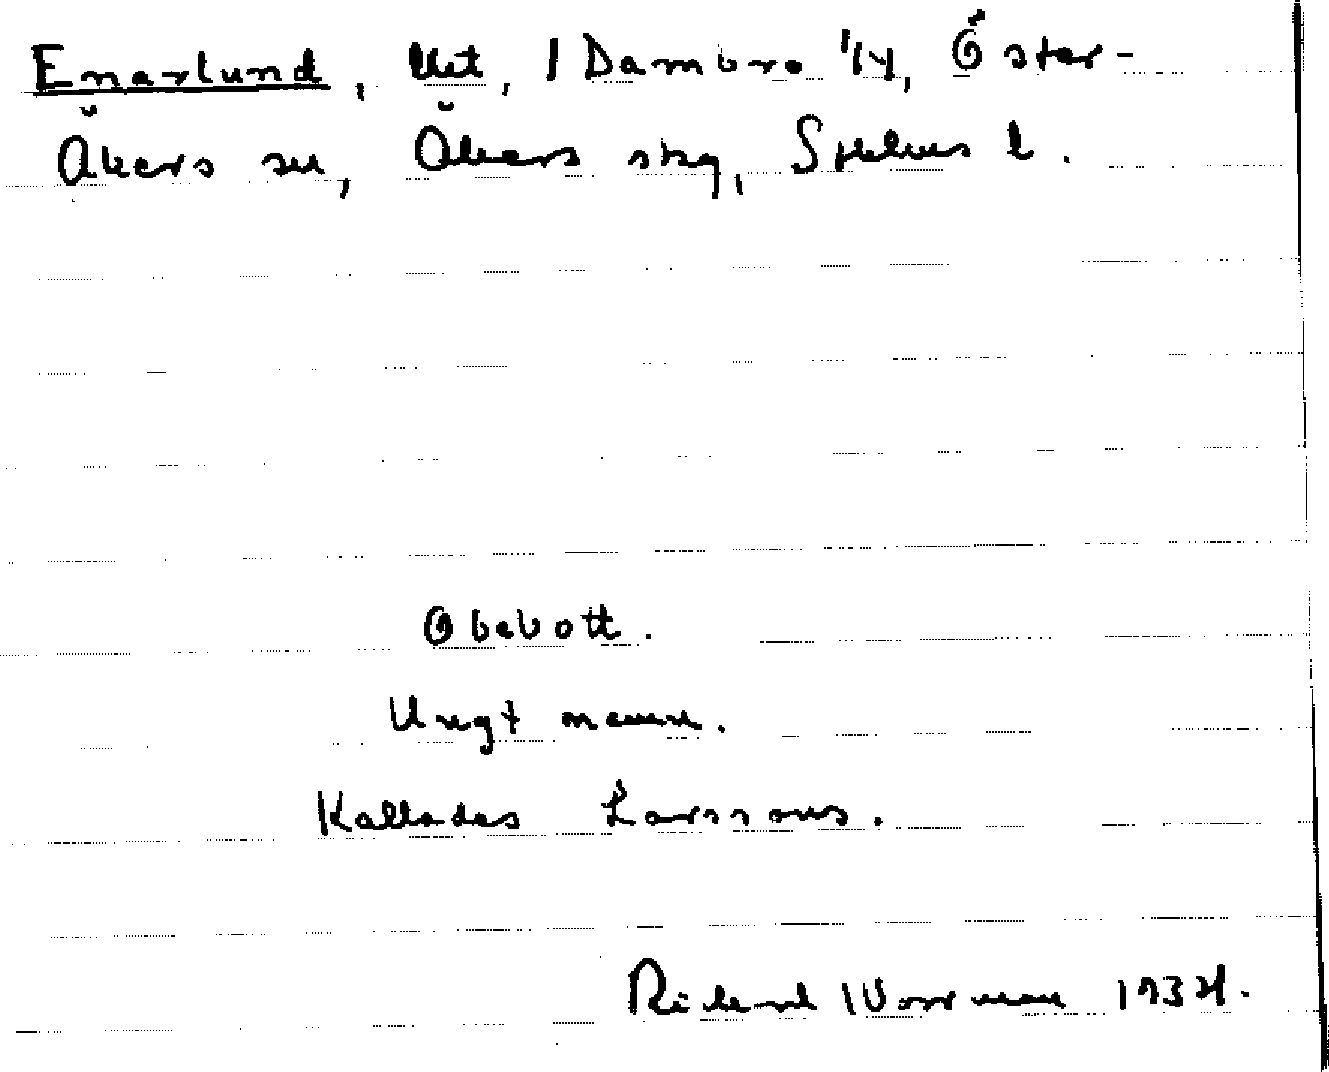 Enarlund, lht, 1 Dambro 1/4, Öster-
Åkers sn, Åkers skg, Sthlms l.
Obebott.
Ungt namn.
Kallades Larssons.
Rickard Wornman 1934.